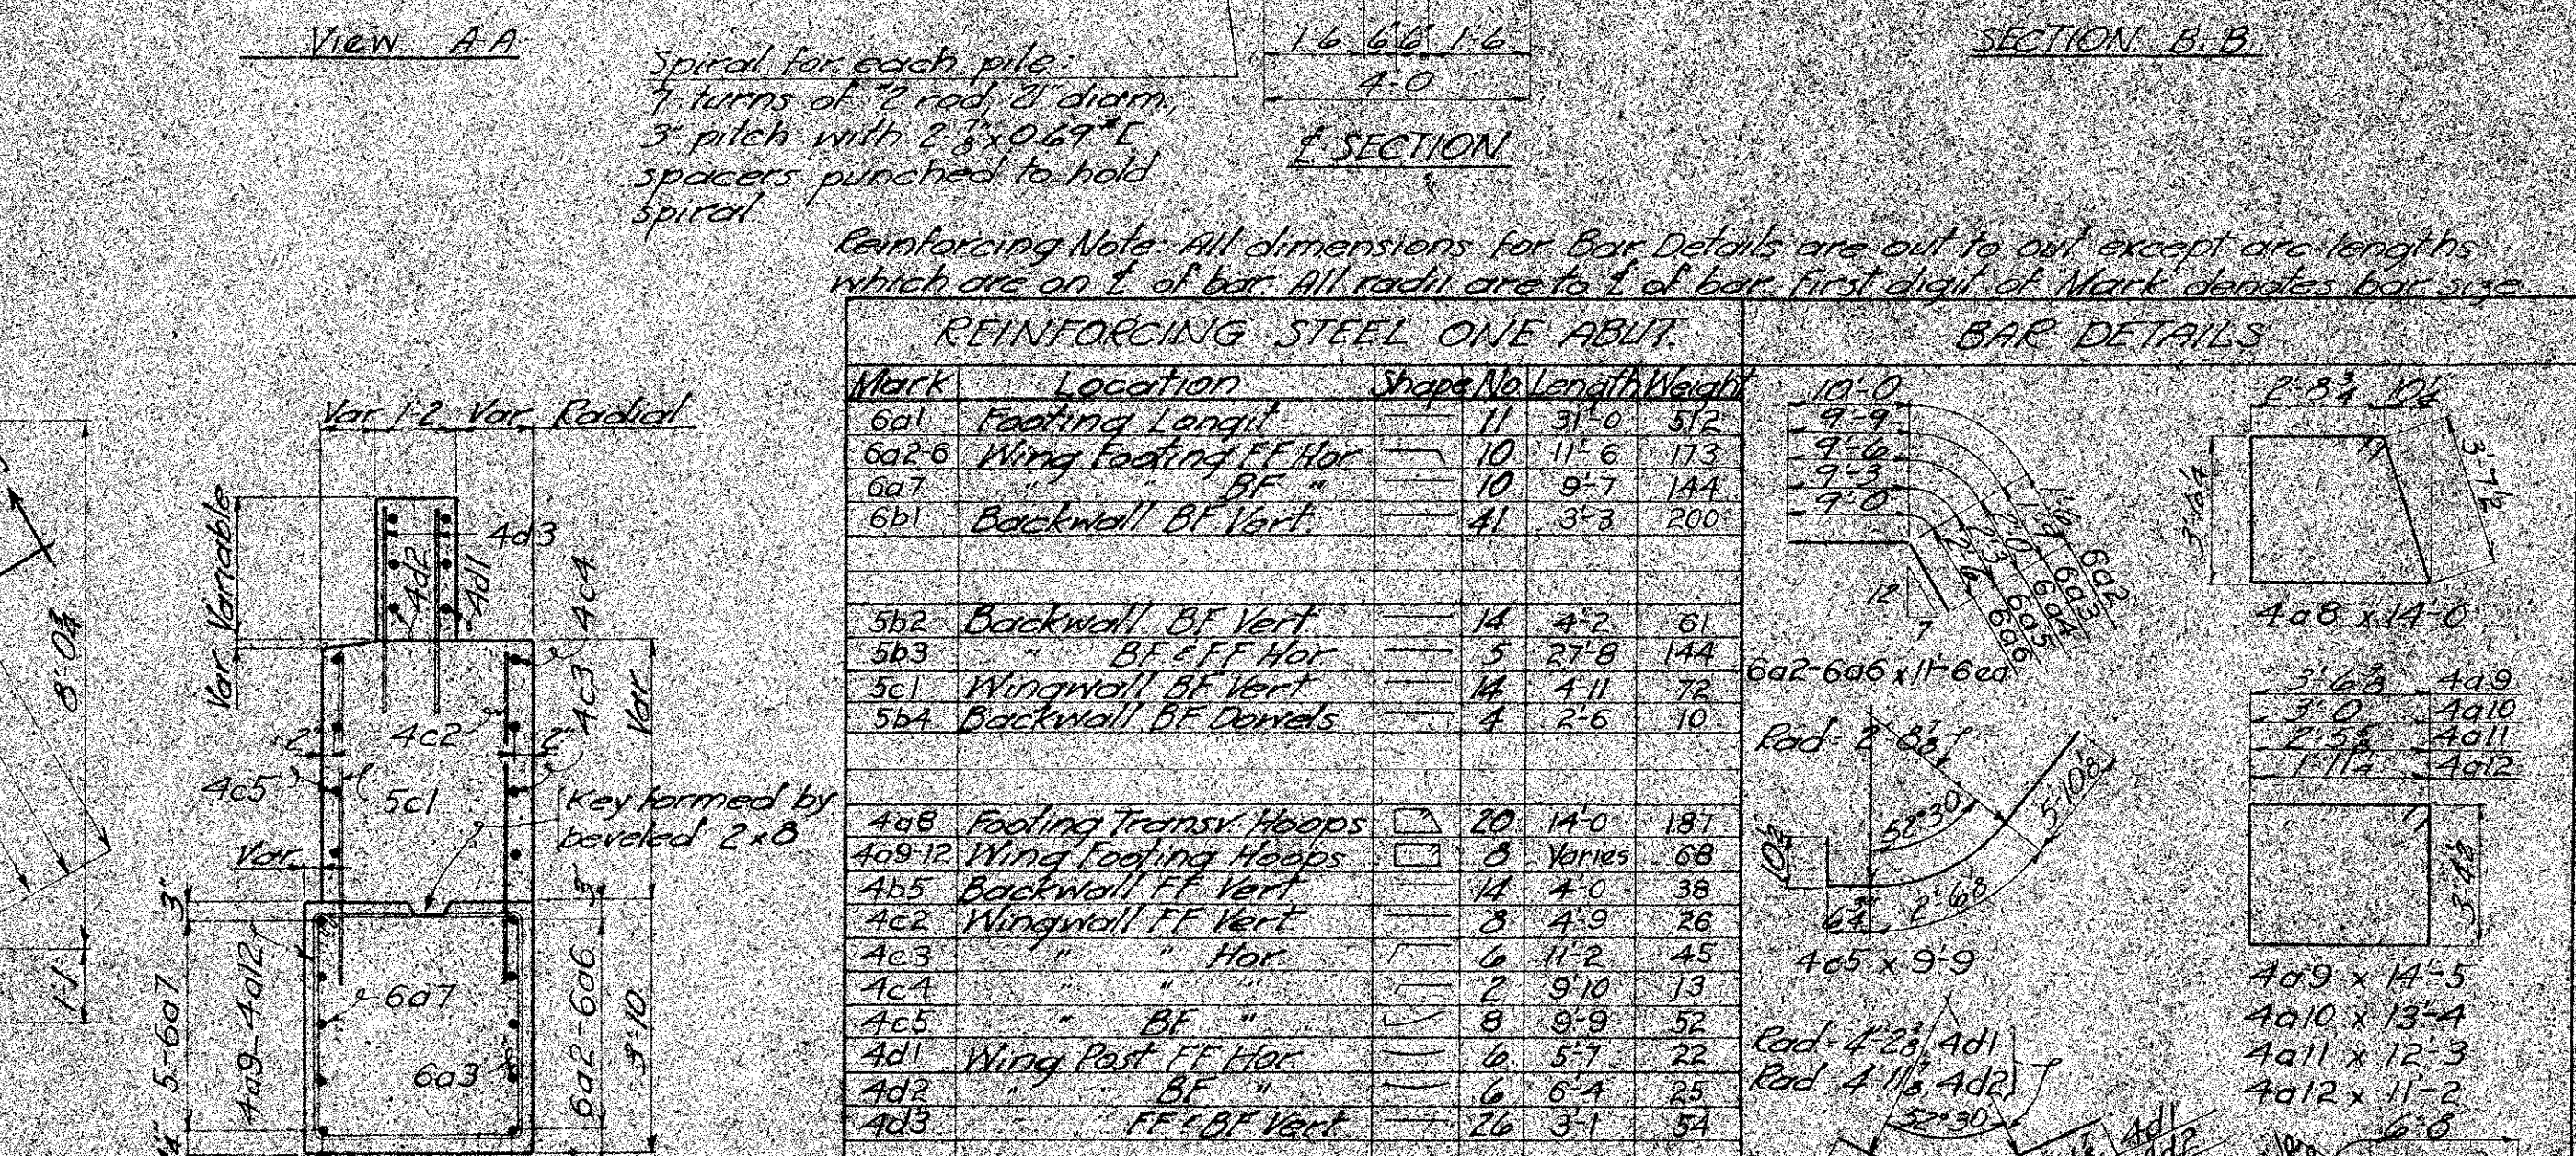 View A-A
Spiral for each pile:
7-turns of "2 rod 21" diam,
3" pitch with 2-7/8" x 0.69# [
spacers punched to hold
spiral
1-6 6 6 1-6
4-0
℄ SECTION
SECTION B-B
Reinforcing Note: All dimensions for Bar Details are out to out except arc lengths
which are on ℄ of bar. All radii are to ℄ of bar. First digit of Mark denotes bar size.
REINFORCING STEEL ONE ABUT.
Mark Location Shape No Length Weight
6a1 Footing Longit 11 31'-0 512
6a2-6 Wing Footing FF Hor 10 11'-6 173
6a7 " " BF " 10 9'-7 144
6b1 Backwall BF Vert. 41 3'-3 200
5b2 Backwall BF Vert. 14 4'-2 61
5b3 " BF & FF Hor 5 27'-8 144
5c1 Wingwall BF Vert 14 4'-11 72
5b4 Backwall BF Dowels 4 2'-6 10
4a8 Footing Transv Hoops 20 14'-0 187
4a9-12 Wing Footing Hoops 8 Varies 68
4b5 Backwall FF Vert 14 4'-0 38
4c2 Wingwall FF Vert 8 4'-9 26
4c3 " " Hor 6 11'-2 45
4c4 " " " 2 9'-10 13
4c5 " BF " 8 9'-9 52
4d1 Wing Post FF Hor 6 5'-7 22
4d2 " " BF " 6 6'-4 25
4d3 " FF & BF Vert 26 3'-1 54
BAR DETAILS
10'-0
9'-9
9'-6
9'-3
9'-0
1'-6 6a2
1'-9 6a3
2'-0 6a4
2'-3 6a5
2'-6 6a6
12
7
6a2-6a6 x 11'-6 ea
2'-8 3/4 10 1/4
3'-6 1/4
3'-7 1/2
4a8 x 14'-0
3'-6 3/8 4a9
3'-0 4a10
2'-5 5/8 4a11
1'-11 1/4 4a12
3'-4 1/2
4a9 x 14'-5
4a10 x 13'-4
4a11 x 12'-3
4a12 x 11'-2
6'-8
Rad = 2'-8 7/8
52°30'
5'-10 1/8
10 1/2
6 3/4
2'-6 1/8
4c5 x 9'-9
Rad = 4'-2 3/8, 4d1
Rad = 4'-11 1/8, 4d2
52°30'
4d1
4d2
Var 1-2 Var Radial
Variable
Var
4d3
4d2
4d1
4c4
4c3
Var
2"
4c2
2"
4c5
5c1
Key formed by
beveled 2x8
Var
3"
3"
5-6a7
4a9-4a12
6a7
6a3
6a2-6a6
3'-10
8'-0 3/4
1'-1